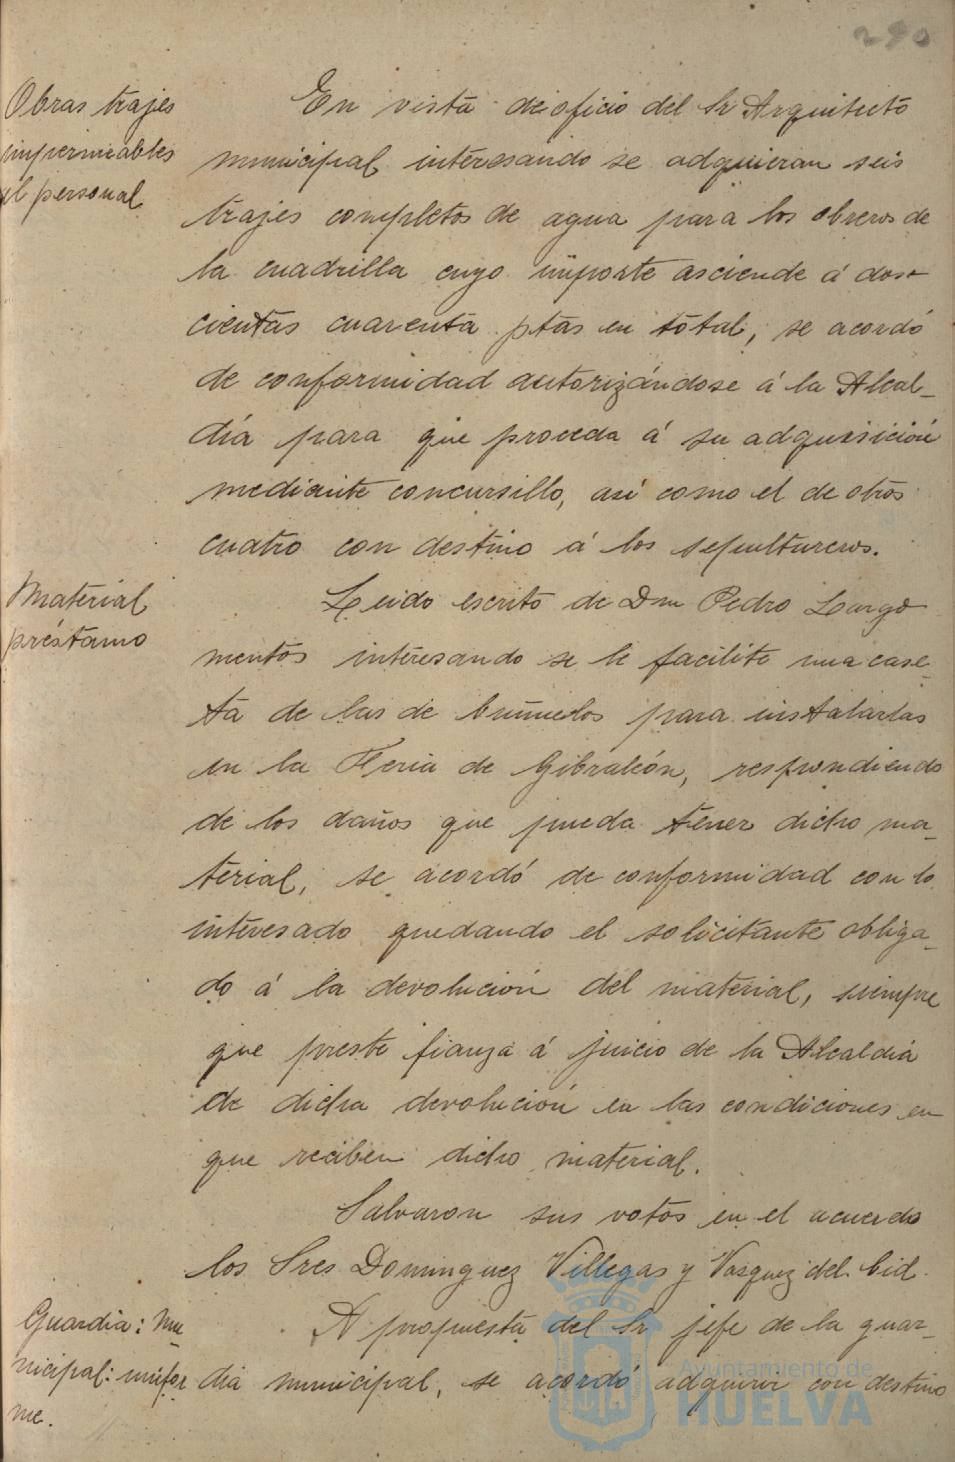 290
Obras trajes
impermeables
al personal
En vista de oficio del Sr Arquitecto
municipal interesando se adquieran seis
trajes completos de agua para los obreros de
la cuadrilla cuyo importe asciende á dos-
cientas cuarenta ptas en total, se acordó
de conformidad autorizándose á la Alcal-
día para que proceda á su adquisición
mediante concursillo, así como el de otros
cuatro con destino á los sepultureros.
Material
préstamo
Leido escrito de Don Pedro Largo
mentos interesando se le facilite una case-
ta de las de buñuelos para instalarlas
en la Feria de Gibraleón, respondiendo
de los daños que pueda tener dicho ma-
terial, se acordó de conformidad con lo
interesado quedando el solicitante obliga-
do á la devolución del material, siempre
que preste fianza á juicio de la Alcaldía
de dicha devolución en las condiciones en
que reciben dicho material.
Salvaron sus votos en el acuerdo
los Sres Dominguez Villegas y Vazquez del Cid.
Guardia: Mu-
nicipal: unifor
me.
A propuesta del Sr jefe de la guar-
dia municipal, se acordó adquirir con destino
Ayuntamiento de
HUELVA